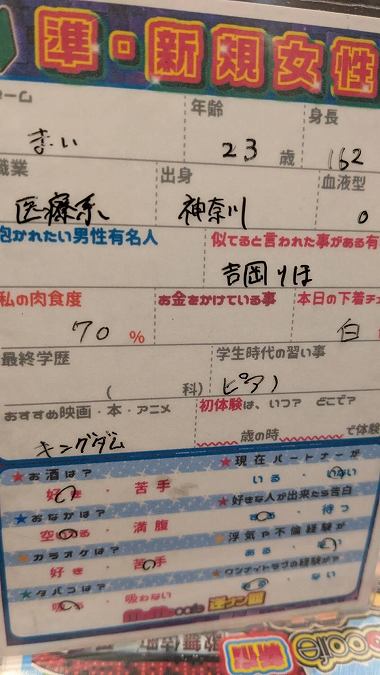 準・新規女性
ーム 年齢 身長
まい 23 歳 162
職業 出身 血液型
医療系 神奈川 O
抱かれたい男性有名人 似てると言われた事がある有
吉岡りほ
私の肉食度 お金をかけている事 本日の下着チ
70 % 白
最終学歴 学生時代の習い事
( 科) ピアノ
おすすめ映画・本・アニメ 初体験は、いつ? どこで?
キングダム 歳の時 で体験
★お酒は? ★現在パートナーが
好き ・ 苦手 いる ・ いない
★おなかは? ★好きな人が出来たら告白
空いてる ・ 満腹 する ・ 待つ
★カラオケは? ★浮気や不倫経験が
好き ・ 苦手 ある ・ ない
★タバコは? ★ワンナイトラブの経験が?
吸う ・ 吸わない ある ・ ない
逆ナン館
歌舞伎町